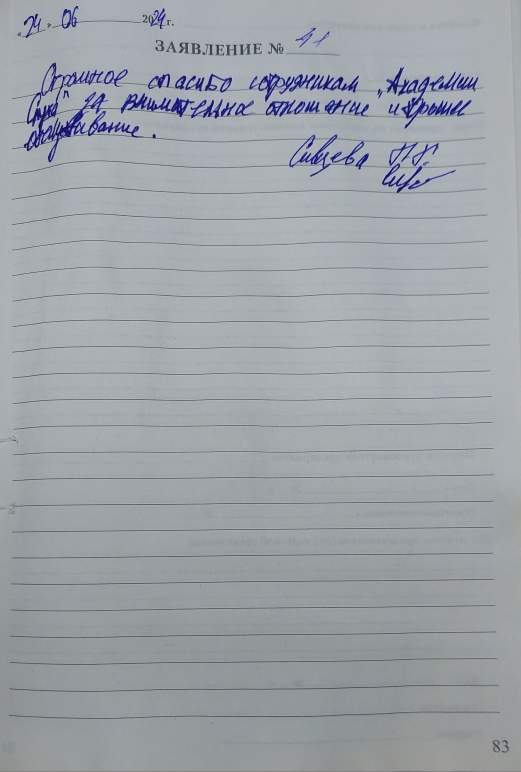 „24" 06 2024 г.
ЗАЯВЛЕНИЕ № 41
Огромное спасибо сотрудникам „Академии
Слуха" за внимательное отношение и хорошее
обслуживание.
Сивцева
83